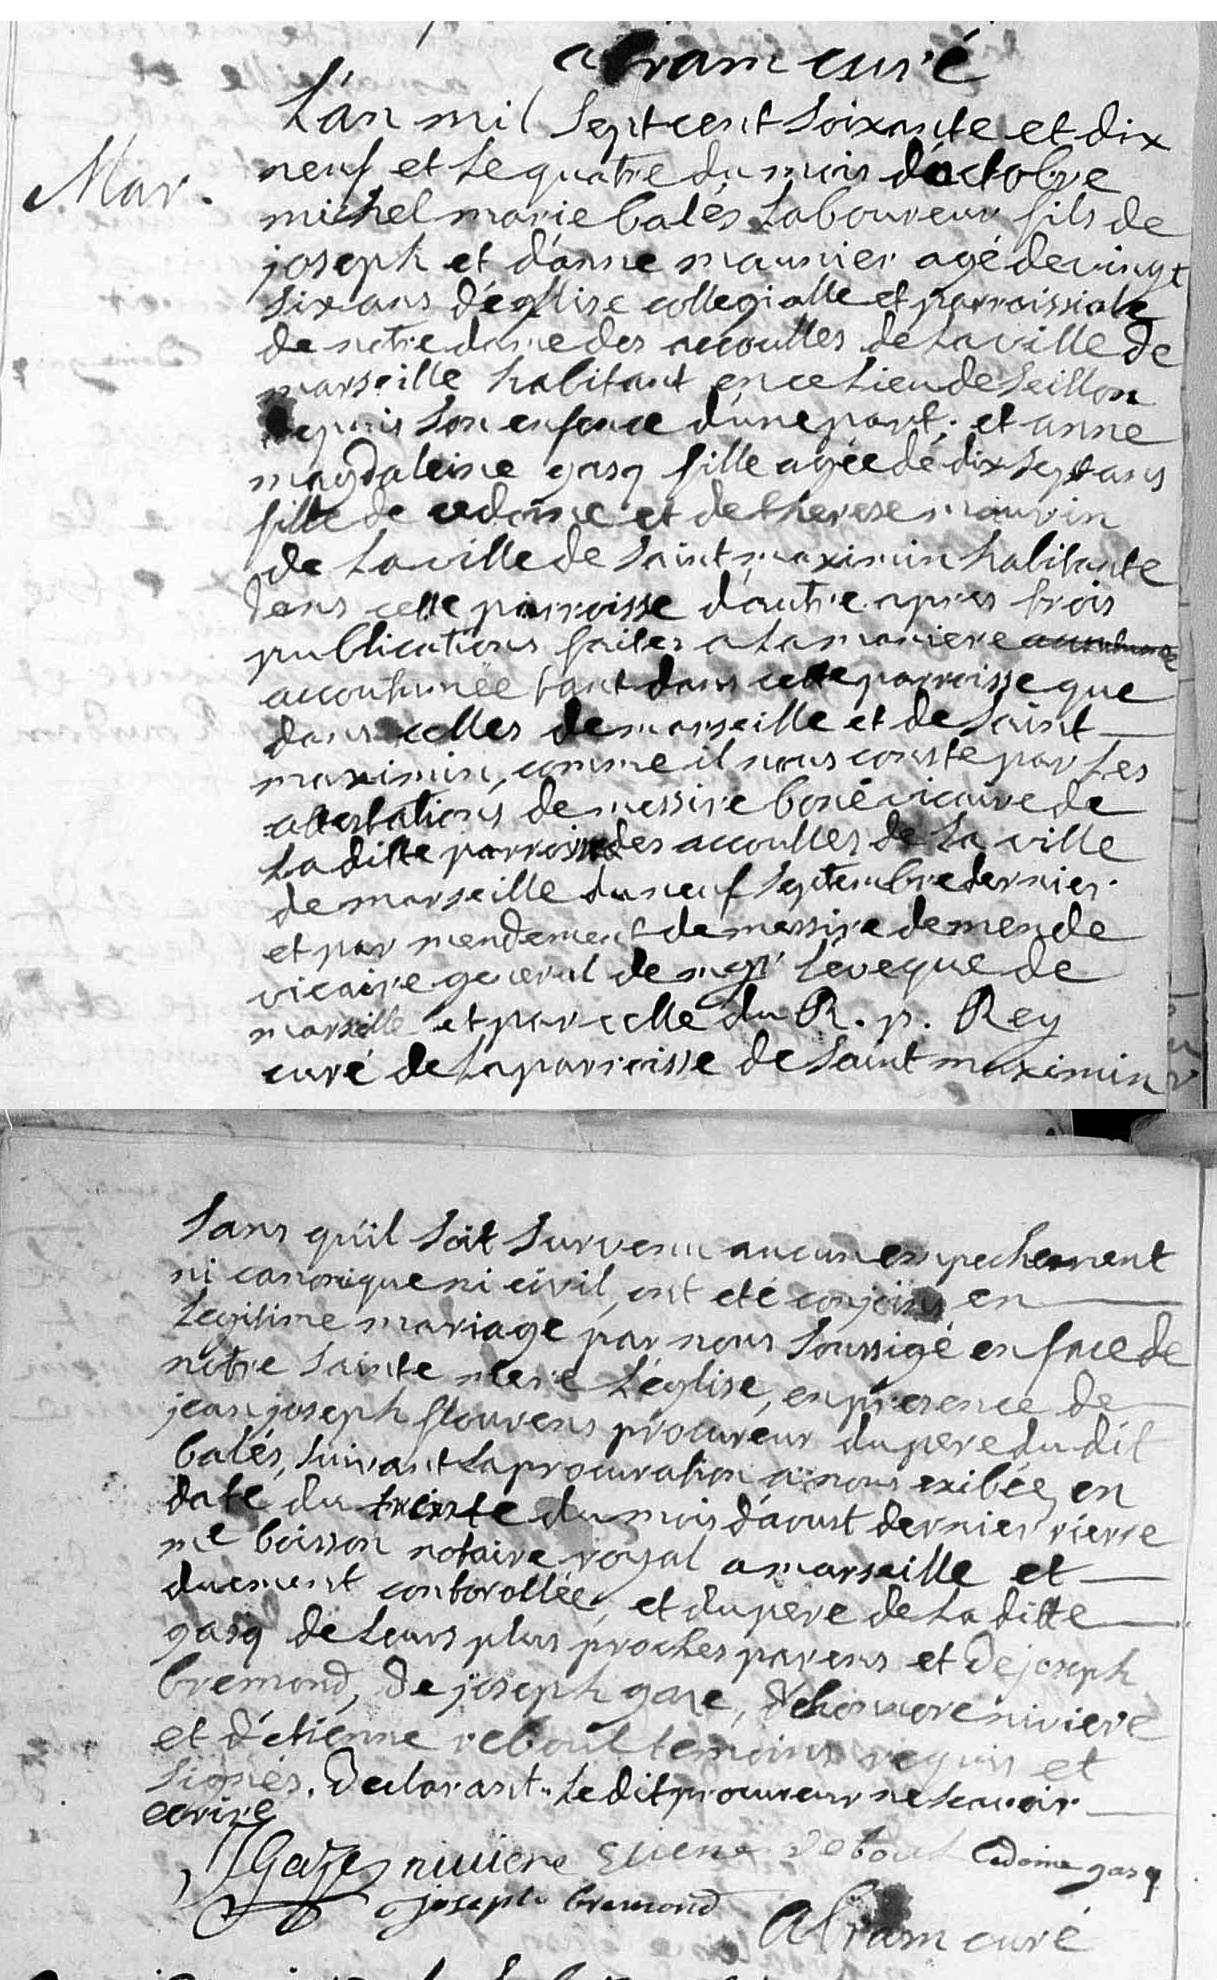 abram curé
L'an mil sept cent soixante et dix
Mar.
neuf et le quatre du mois d'octobre
michel marie balés laboureur fils de
joseph et d'anne maunier agé de vingt
six ans d'eglise collegialle et parroissiale
de notre dame des accoulles de la ville de
marseille habitant en ce lieu de seillon
depuis son enfance d'une part. et anne
magdaleine gasq fille agée de dix sept ans
fille de edome et de therese mauvin
de la ville de saint maximin habitante
dans cette parroisse d'autre apres trois
publications faites a la maniere
accoutumée tant dans cette parroisse que
dans celles de marseille et de saint
maximin, comme il nous conste par les
attestations de messire boné vicaire de
la ditte parroisse des accoulles de la ville
de marseille du neuf septembre dernier.
et par mendement de messire demende
vicaire general de mgr l'eveque de
marseille et par celle du R. p. Rey
curé de la parroisse de saint maximin
sans qu'il soit survenu aucun empechement
ni canonique ni civil, ont eté conjoins en
legitime mariage par nous soussigé en face de
notre sainte mere l'église, en presence de
jean joseph flouvens procureur du pere du dit
balés, suivant la procuration a nous exibée, en
date du trente du mois d'aoust dernier rierre
me boisson notaire royal a marseille et
duement controllée, et du pere de la ditte
gasq de leurs plus proches parens et de joseph
bremond, de joseph gaze, d'honnore niviere
et d'étienne reboul temoins requis et
signés. Declarant le dit procureur ne scavoir
ecrire
JGaze niviere etiene reboul edome gasq
joseph bremond
Abram curé